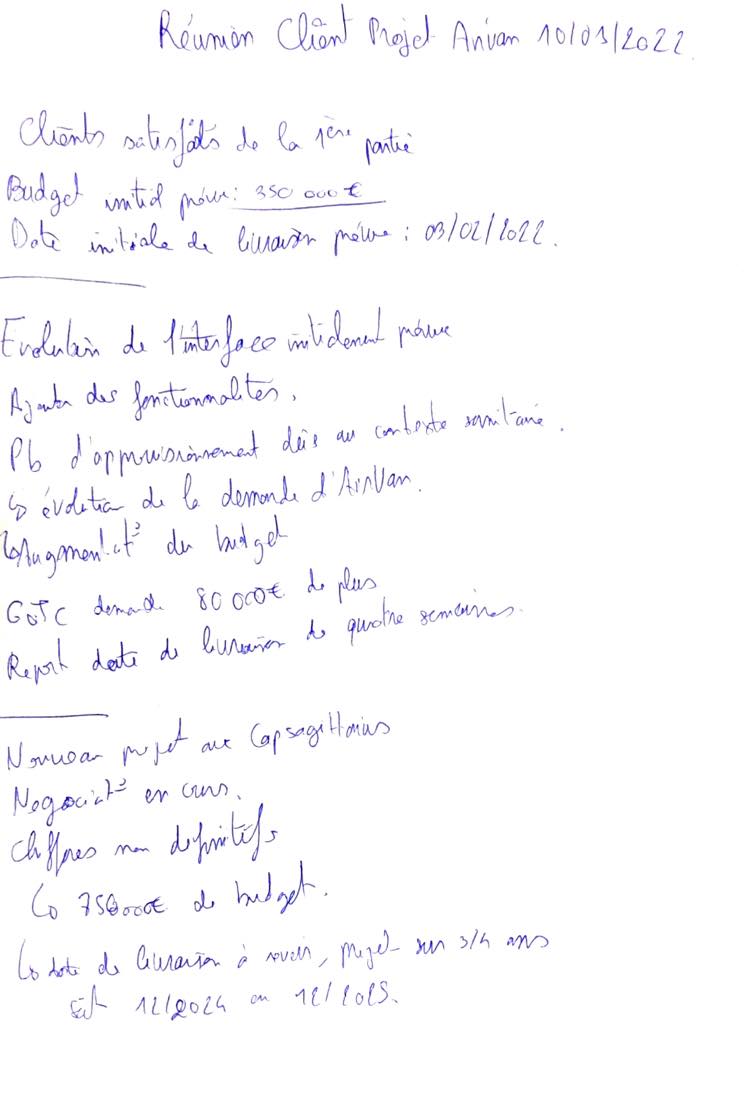 Réunion Client Projet Airvan 10/01/2022
Clients satisfaits de la 1ère partie
Budget initial prévu : 350 000 €
Date initiale de livraison prévue : 03/02/2022.
Evolution de l'interface initialement prévue
Ajouter des fonctionnalités,
Pb d'approvisionnement dûs au contexte sanitaire.
↳ évolution de la demande d'AirVan.
↳ Augmentat° du budget
demande 80 000€ de plus
Report date de livraison de quatre semaines.
Nouveau projet avec Capsagittarius
Négociat° en cours.
Chiffres non définitifs
↳ 750000€ de budget.
↳ date de livraison à revoir, projet sur 3/4 ans
Soit 12/2024 ou 12/2025.